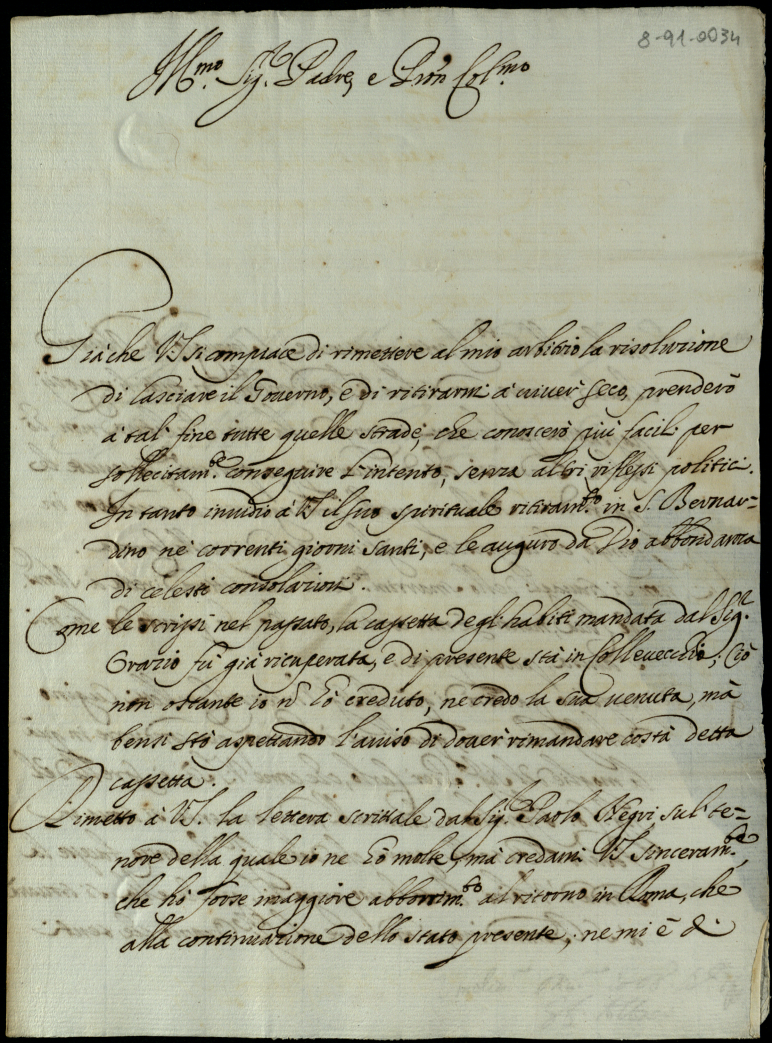 8-91-0034
Ill.mo Sig.r Padre, e Pron Col.mo
Già che VS si compiace di rimettere al mio arbitrio la risoluzione
di lasciare il Governo, e di ritirarmi à viver seco, prenderò
à tal' fine tutte quelle strade, che conoscerò più facili per
sollecitam.te conseguire l'intento, senza altri riflessi politici.
In tanto invidio à VS il suo spirituale ritiram.to in S. Bernar=
dino ne' correnti giorni santi, e le auguro da Dio abbondanza
di celesti consolazioni.
Come le scrissi nel passato, la cassetta degl'habiti mandata dal Sig.r
Orazio fù già ricuperata, e di presente stà in Collevecchio; Ciò
non ostante io nō hò creduto, ne credo la sua venuta, mà
bensi stò aspettando l'avviso di dover rimandare costà detta
cassetta.
Rimetto à VS. la lettera scrittale dal Sig.r Paolo Negri sul te=
nore della quale io ne hò molte, mà credami VS sinceram.te,
che hò forse maggiore abborrim.to al ritorno in Roma, che
alla continuazione dello stato presente, ne mi è di